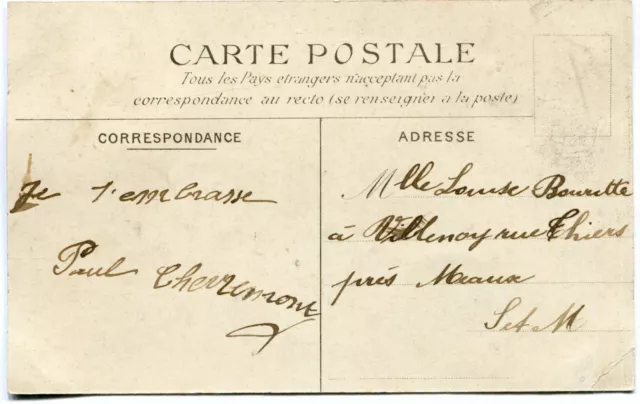 CARTE POSTALE
Tous les Pays etrangers n'acceptant pas la
correspondance au recto (se renseigner a la poste)
CORRESPONDANCE
ADRESSE
Je t'embrasse
Paul
Mlle Louise Bourette
à Villenoy rue Thiers
près Meaux
S et M